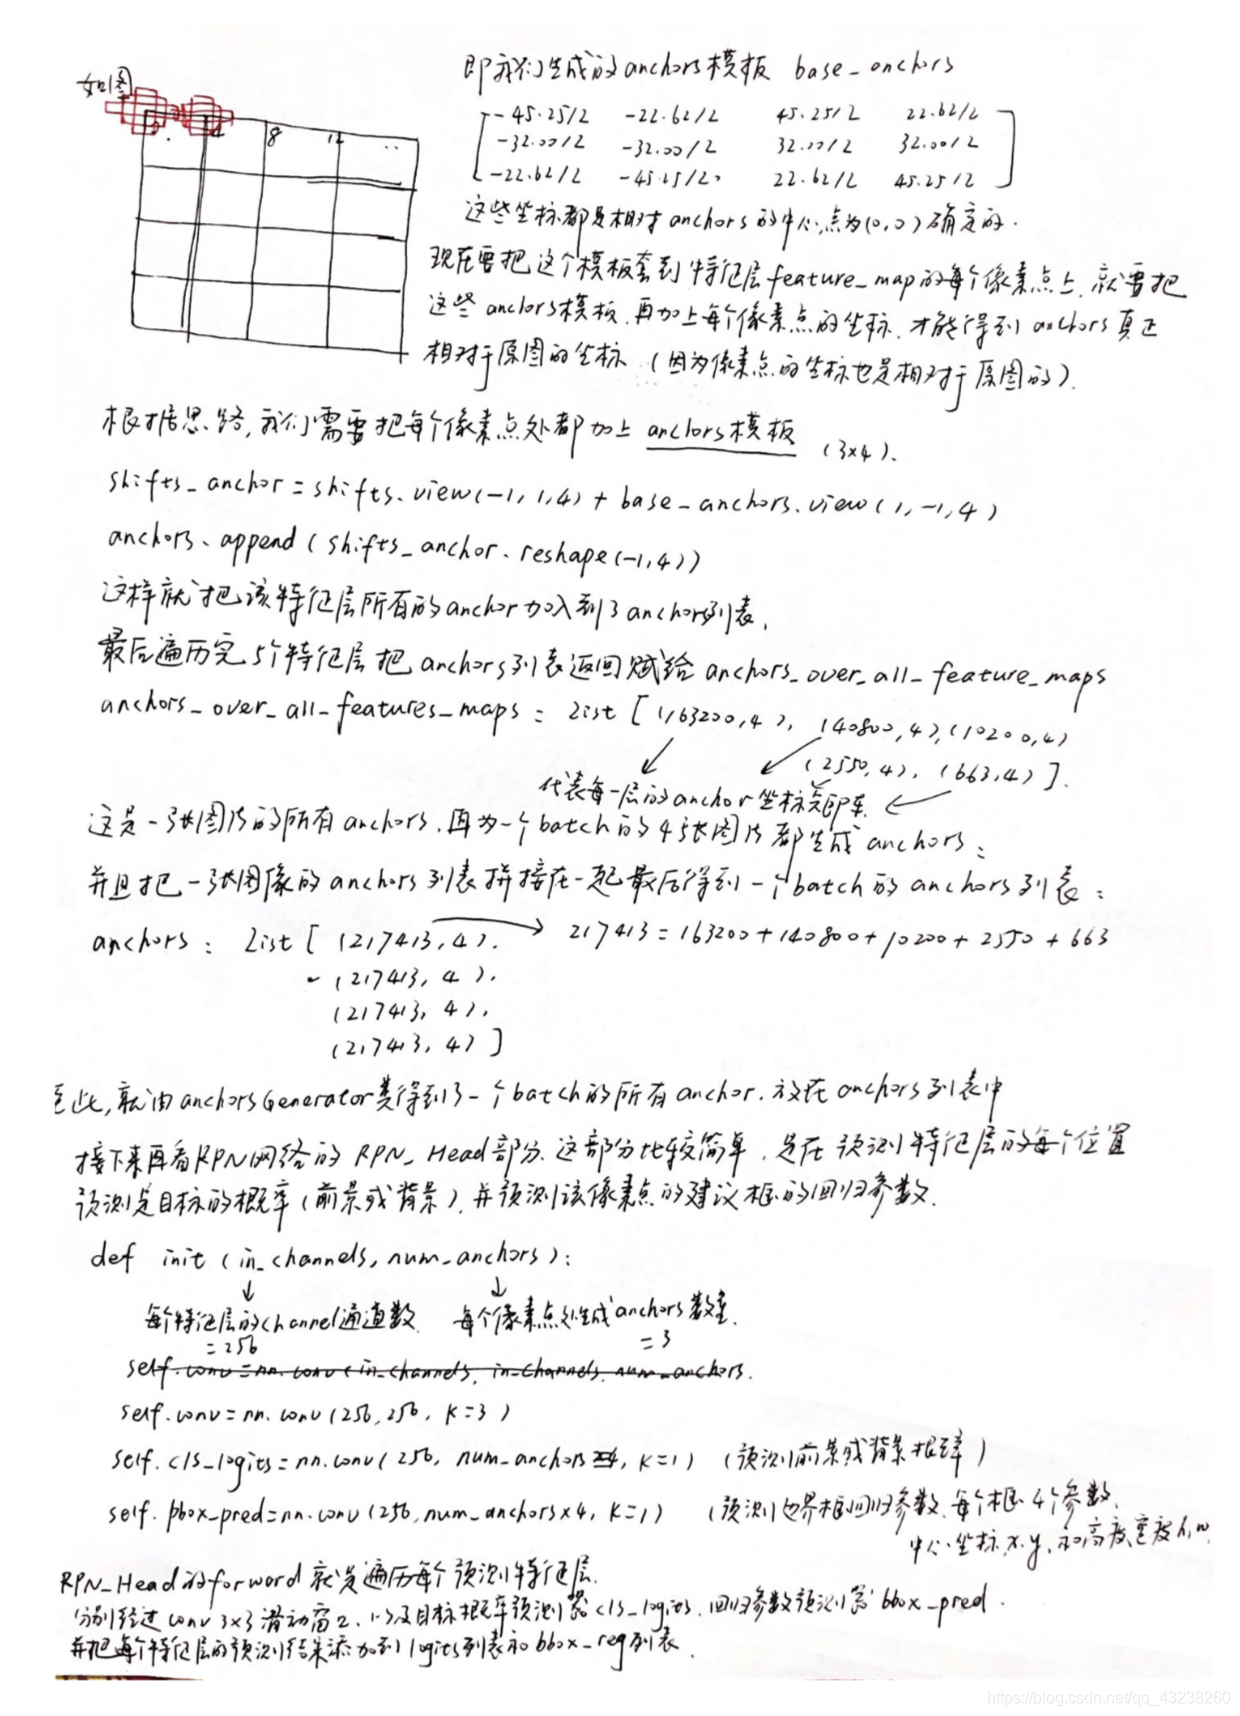 如图
8 12 ..
即我们生成的anchors模板 base_anchors
-45.25/2 -22.62/2 45.25/2 22.62/2
-32.00/2 -32.00/2 32.00/2 32.00/2
-22.62/2 -45.25/2 22.62/2 45.25/2
这些坐标都是相对anchors的中心点为(0,0)确定的.
现在要把这个模板套到特征层feature_map的每个像素点上,就要把
这些anchors模板,再加上每个像素点的坐标,才能得到anchors真正
相对于原图的坐标 (因为像素点的坐标也是相对于原图的).
根据思路,我们需要把每个像素点处都加上anchors模板 (3×4).
shifts_anchor = shifts.view(-1,1,4) + base_anchors.view(1,-1,4)
anchors.append(shifts_anchor.reshape(-1,4))
这样就把该特征层所有的anchor加入到了anchors列表,
最后遍历完5个特征层把anchors列表返回赋给anchors_over_all_feature_maps
anchors_over_all_features_maps = List [ (163200,4), (40800,4),(10200,4)
(2550,4), (663,4) ].
代表每一层的anchor坐标
这是一张图片的所有anchors.再为一个batch的4张图片都生成anchors:
并且把一张图像的anchors列表拼接在一起最后得到一个batch的anchors列表:
anchors: List [ (217413,4). → 217413=163200+140800+10200+2550+663
(217413, 4).
(217413, 4).
(217413, 4) ]
至此,就由anchorsGenerator类得到了一个batch的所有anchor.放在anchors列表中
接下来再看RPN网络的RPN_Head部分.这部分比较简单,是在预测特征层的每个位置
预测是目标的概率(前景或背景),并预测该像素点的建议框的回归参数.
def init (in_channels, num_anchors):
每个特征层的channel通道数 每个像素点处生成anchors数量.
=256 =3
self.conv=nn.conv(in_channels, in_channels, num_anchors.
self.conv=nn.conv(256,256, K=3)
self.cls_logits=nn.conv(256, num_anchors, K=1) (预测前景或背景概率)
self.bbox_pred=nn.conv(256,num_anchors×4, K=1) (预测边界框回归参数,每个框4个参数,
中心坐标x.y,和高度宽度h,w.
RPN_Head的forword就是遍历每个预测特征层.
分别经过conv 3×3滑动窗口、以及目标概率预测器cls_logits,回归参数预测器bbox_pred.
并把每个特征层的预测结果添加到logits列表和bbox_reg列表.
https://blog.csdn.net/qq_43238260